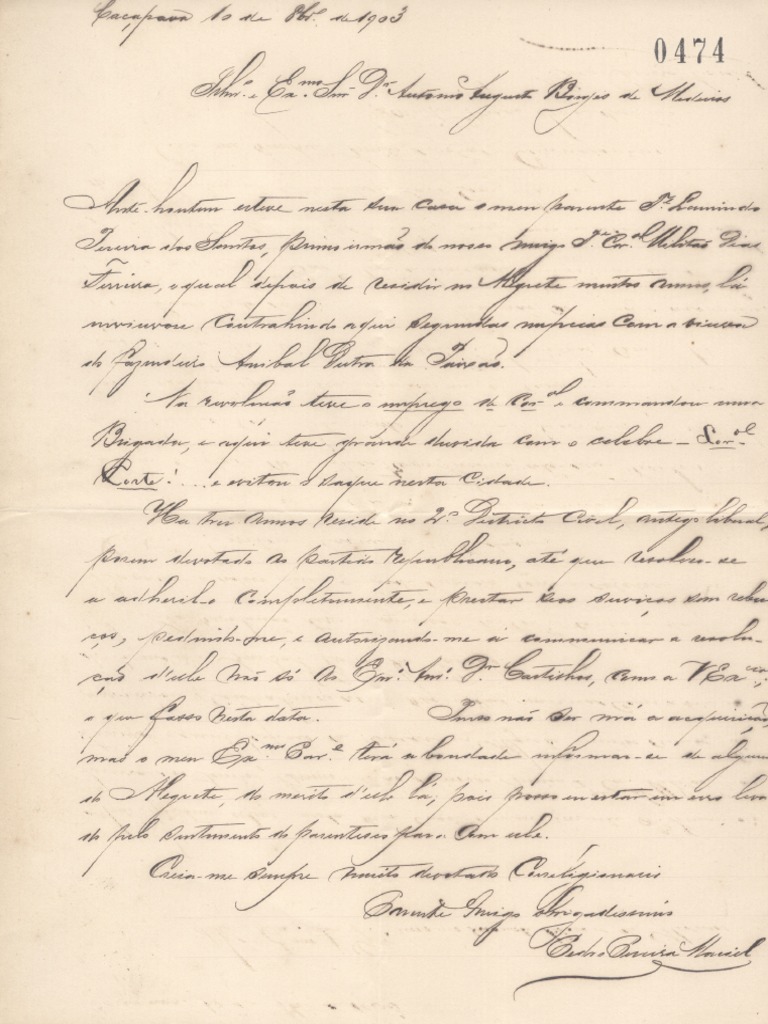 Caçapava 10 de 8br.º de 1903
0474
Illm.º e Ex.mo Snr. D.r Antonio Augusto Borges de Medeiros
Ante-hontem esteve nesta sua casa o meu parente
Pereira dos Santos, primo irmão de nosso amigo T.e Cor.el Militão Dias
Ferreira, o qual depois de residir no Alegrete muitos annos, lá
enviuvou contrahindo aqui segundas nupcias com a viuva
do fazendeiro Anibal Dutra da
Na revolução teve o emprego de Cor.el e commandou uma
Brigada, e aqui teve grande duvida com o celebre - Cor.el
! ... e evitou o saque nesta Cidade.
Ha tres annos reside no 2.º Districto Civel, antigo liberal,
porem devotado ao partido republicano, até que resolveu-se
a adheril-o completamente, e prestar seos serviços sem rebu-
ços, pedindo-me, e autorizando-me a communicar a resolu-
ção d'elle não só ao Em.º Am.º D.r Castilhos, como a V Ex.cia,
o que fasso nesta data. não ser má a acquisição,
mas o meu Ex.mo terá a bondade informar-se de alguem
do Alegrete, do merito d'elle lá, pois posso eu estar em erro leva-
do pelo sentimento do parentesco para com elle.
Creia-me sempre muito devotado Correligionario
Parente Amigo Obrigadissimo
Pedro Pereira Maciel